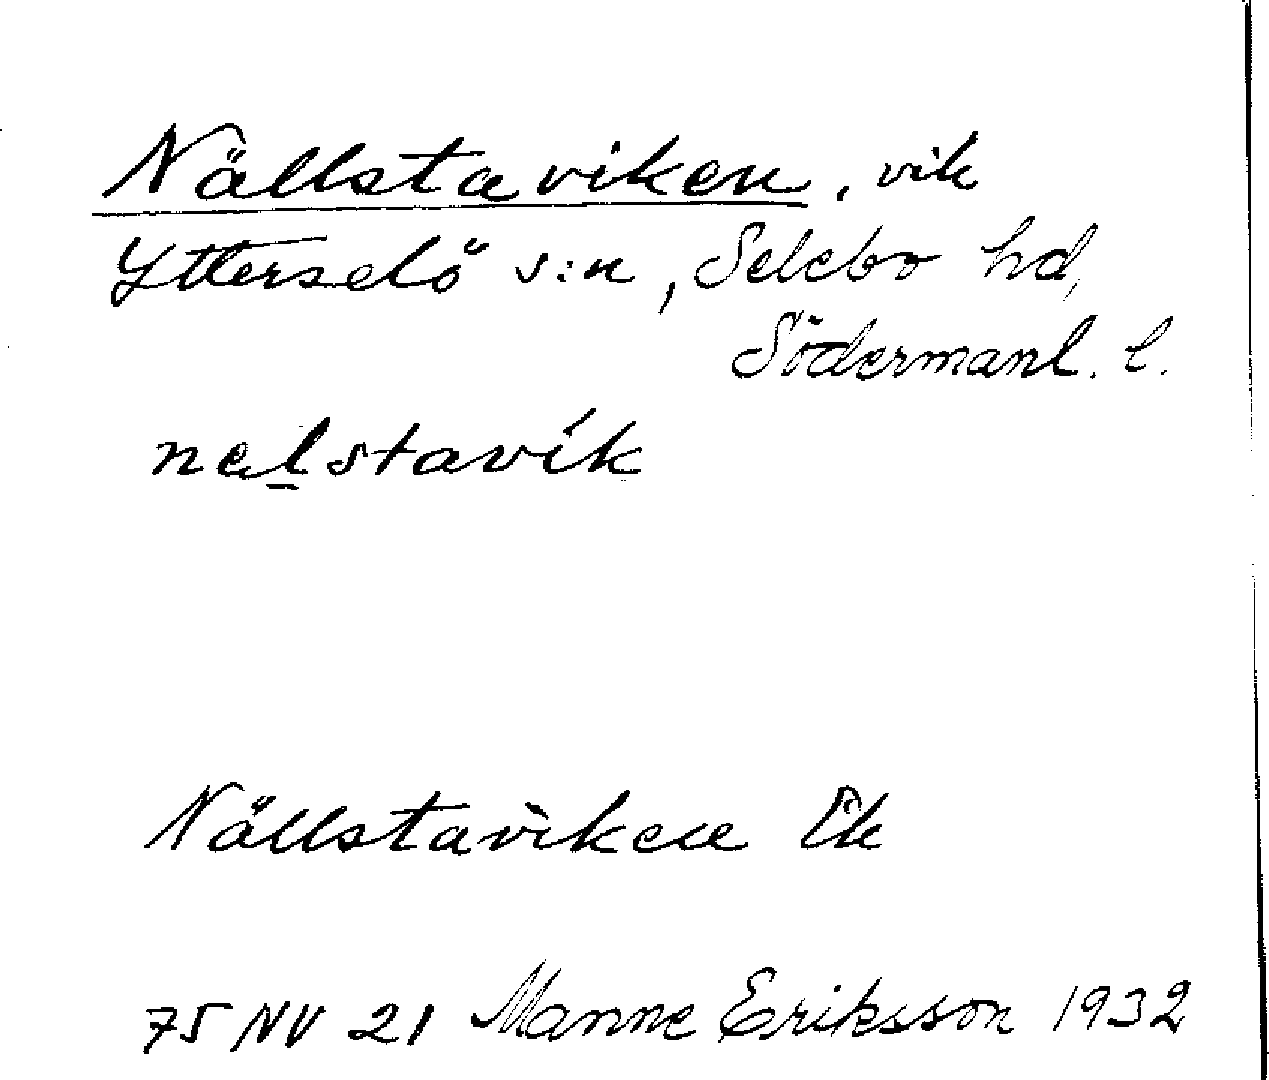 Nällstaviken, vik
Ytterselö s:n, Selebo hd,
Södermanl. l.
nelstavik
Nällstaviken Ek
75 NV 21 Manne Eriksson 1932